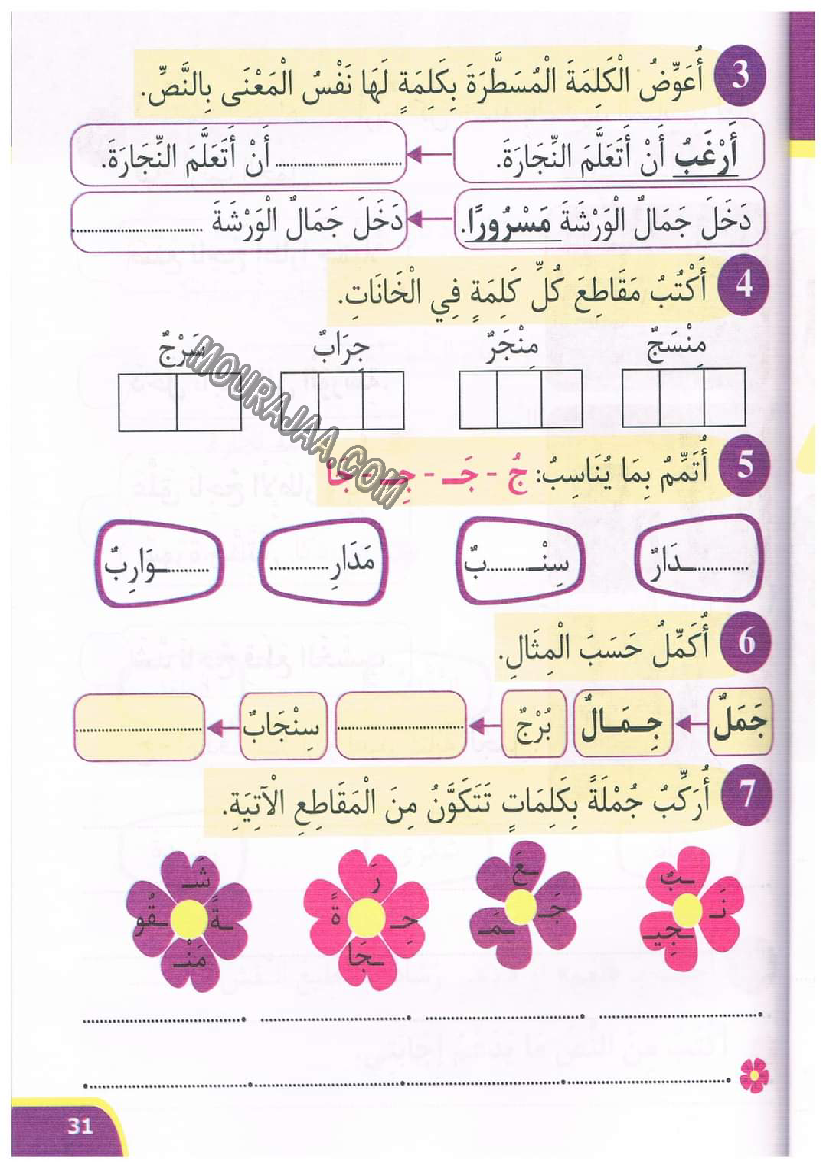 3 أُعَوِّضُ الْكَلِمَةَ الْمُسَطَّرَةَ بِكَلِمَةٍ لَهَا نَفْسُ الْمَعْنَى بِالنَّصِّ.
أَرْغَبُ أَنْ أَتَعَلَّمَ النِّجَارَةَ. .......... أَنْ أَتَعَلَّمَ النِّجَارَةَ.
دَخَلَ جَمَالٌ الْوَرْشَةَ مَسْرُورًا. دَخَلَ جَمَالٌ الْوَرْشَةَ ..........
4 أَكْتُبُ مَقَاطِعَ كُلِّ كَلِمَةٍ فِي الْخَانَاتِ.
مِنْسَجٌ مِنْجَرٌ جِرَابٌ سَرْجٌ
MOURAJAA.COM
5 أُتَمِّمُ بِمَا يُنَاسِبُ: جُ - جَـ - جِـ - جَا
..........ـدَارٌ سِنْـ..........بٌ مَدَارِ.......... ..........ـوَارِبٌ
6 أُكَمِّلُ حَسَبَ الْمِثَالِ.
جَمَلٌ جِـمَـالٌ بُرْجٌ .......... سِنْجَابٌ ..........
7 أُرَكِّبُ جُمْلَةً بِكَلِمَاتٍ تَتَكَوَّنُ مِنَ الْمَقَاطِعِ الْآتِيَةِ.
ـبٌ نَـ ـجِيـ
ـعَ جَـ ـمَـ
رَ ةً حِـ ـجَا
شَـ ـقُو ـةً مَنْـ
31